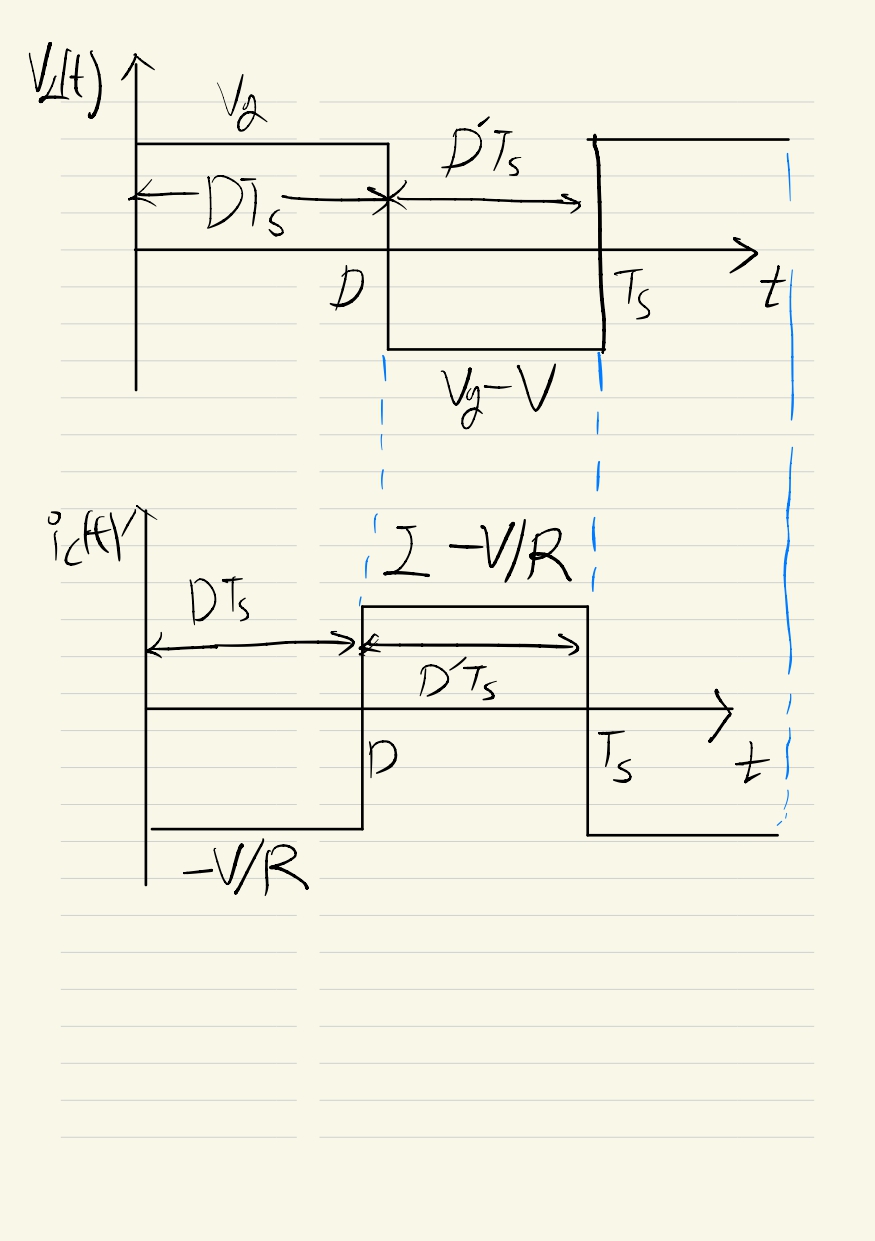 V_L(t)
V_g
D'T_s
DT_s
D
T_s
t
V_g-V
i_c(t)
I -V/R
DT_s
D'T_s
D
T_s
t
-V/R